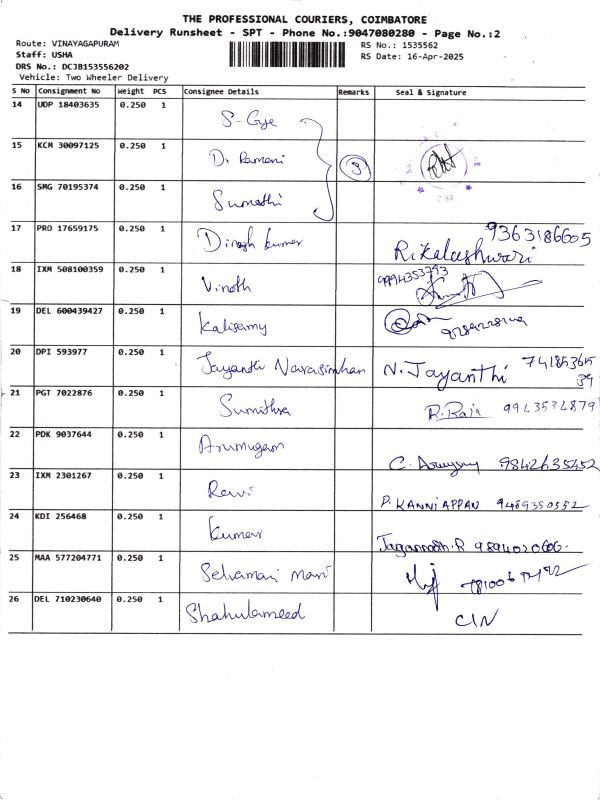 THE PROFESSIONAL COURIERS, COIMBATORE
Delivery Runsheet - SPT - Phone No.:9047080280 - Page No.:2
Route: VINAYAGAPURAM
Staff: USHA
DRS No.: DCJB153556202
Vehicle: Two Wheeler Delivery
RS No.: 1535562
RS Date: 16-Apr-2025
S No Consignment No Weight PCS Consignee Details Remarks Seal & Signature
14 UDP 18403635 0.250 1
15 KCM 30097125 0.250 1 D. Ramani 3
16 SMG 70195374 0.250 1 Sumathi
17 PRO 17659175 0.250 1 Dinesh kumar 9363186605
18 IXM 508100359 0.250 1 Vinoth 9994353793
19 DEL 600439427 0.250 1 Kalisamy
20 DPI 593977 0.250 1 Jayanthi Narasimhan N. Jayanthi
21 PGT 7022876 0.250 1 Sumithra R. Raja 9943532879
22 PDK 9037644 0.250 1 Arumugam C. 9842635252
23 IXM 2301267 0.250 1 Ravi P. KANNIAPPAN 9489350552
24 KDI 256468 0.250 1 kumar Jagannath. R 9894020606.
25 MAA 577204771 0.250 1 Selvamari
26 DEL 710230640 0.250 1 Shahulameed